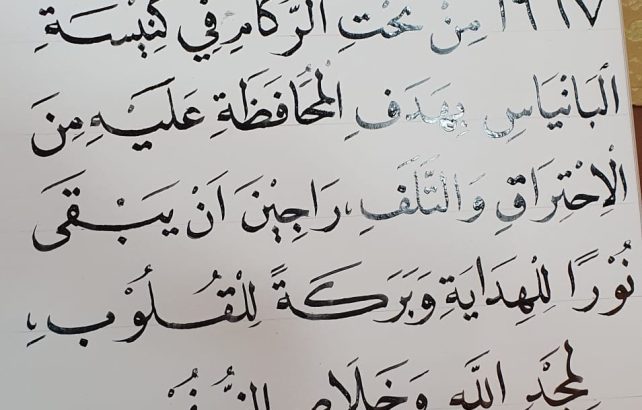 ١٩٦٧ مِنْ تَحْتِ الرُّكَامِ فِي كَنِيْسَةِ
الْبَانْيَاسِ بِهَدَفِ الْمُحَافَظَةِ عَلَيْهِ مِنَ
الْاِحْتِرَاقِ وَالتَّلَفِ، رَاجِيْنَ اَنْ يَبْقَى
نُوْرًا لِلْهِدَايَةِ وَبَرَكَةً لِلْقُلُوْبِ،
لِمَجْدِ اللّٰهِ وَخَلَاصِ النُّفُوْسِ